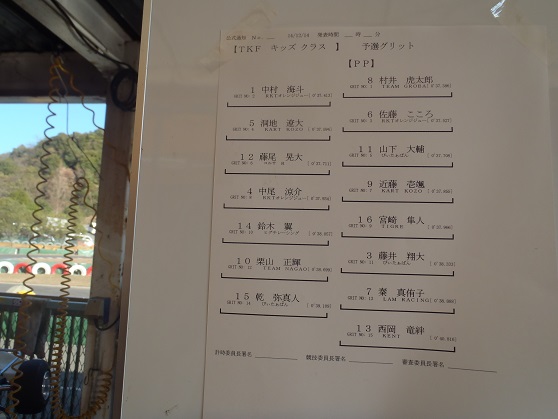 公式通知 No.
発表時間 時 分
【TKF キッズクラス 】 予選グリット
【PP】
8 村井 虎太郎
GRIT NO. 1
1 中村 海斗
GRIT NO. 2 RKTオレンジジュー
6 佐藤 こころ
GRIT NO. 3 RKTオレンジジュー
5 洞地 遼大
GRIT NO. 4 KART KOZO
11 山下 大輔
GRIT NO. 5 ぴぃたぁぱん
12 藤尾 晃大
GRIT NO. 6
9 近藤 壱颯
GRIT NO. 7 KART KOZO
4 中尾 涼介
GRIT NO. 8 RKTオレンジジュー
16 宮崎 隼人
GRIT NO. 9 TIGRE
14 鈴木 翼
GRIT NO. 10 ミクレーシング
3 藤井 翔大
GRIT NO. 11 ぴぃたぁぱん
10 栗山 正輝
GRIT NO. 12 TEAM NAGAO
7 秦 真侑子
GRIT NO. 13 LAM RACING
15 乾 弥真人
GRIT NO. 14 ぴぃたぁぱん
13 西岡 竜絆
GRIT NO. 15 KENT
計時委員長署名 競技委員長署名 審査委員長署名